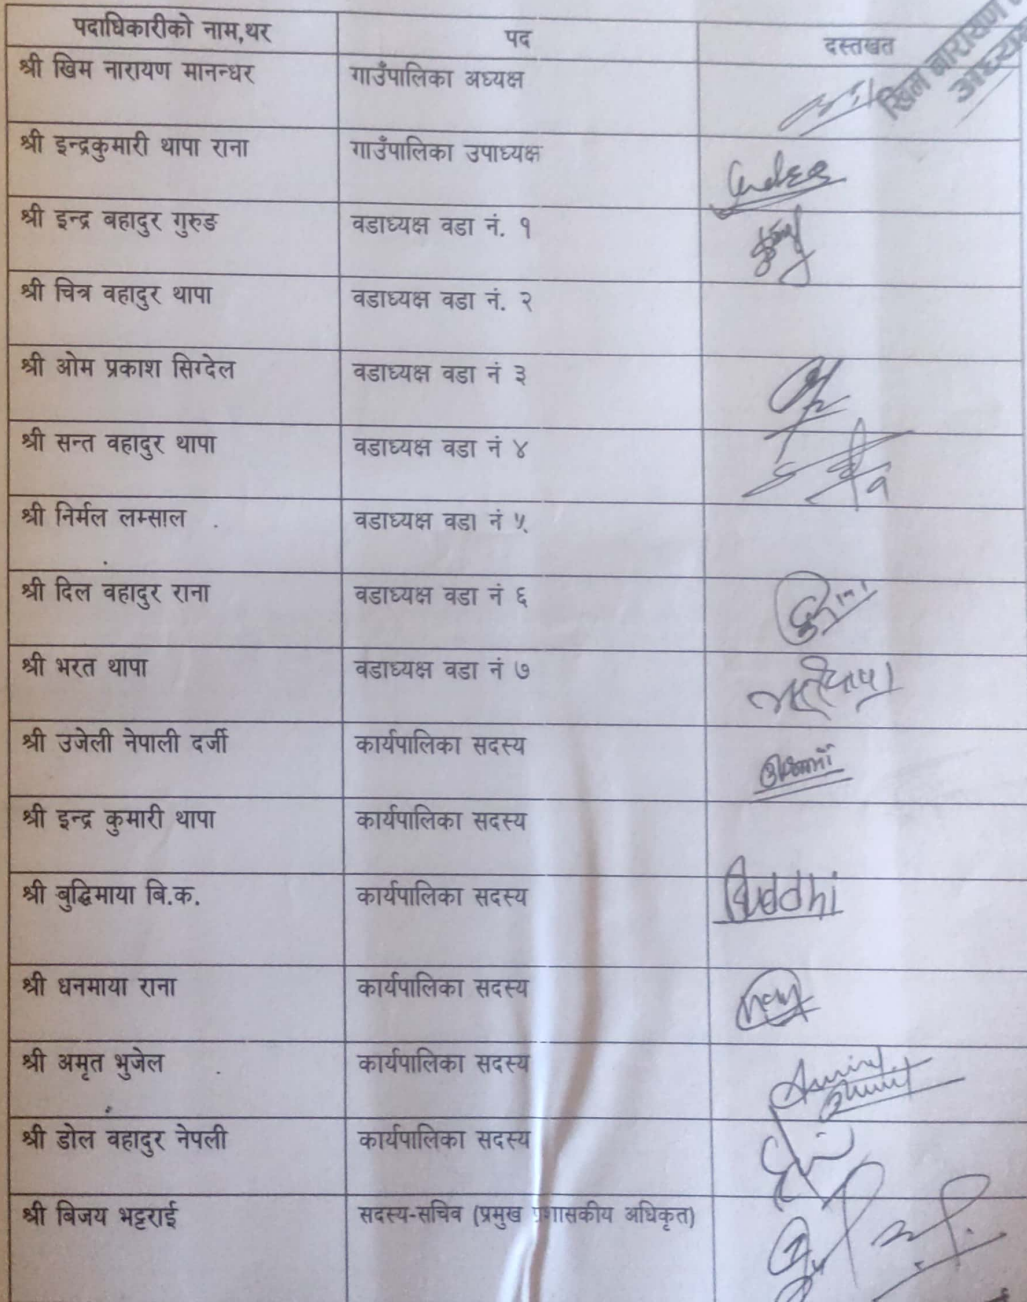 पदाधिकारीको नाम,थर पद दस्तखत
श्री खिम नारायण मानन्धर गाउँपालिका अध्यक्ष
खिम नारायण
अध्यक्ष
श्री इन्द्रकुमारी थापा राना गाउँपालिका उपाध्यक्ष
श्री इन्द्र बहादुर गुरुङ वडाध्यक्ष वडा नं. १
श्री चित्र वहादुर थापा वडाध्यक्ष वडा नं. २
श्री ओम प्रकाश सिग्देल वडाध्यक्ष वडा नं ३
श्री सन्त वहादुर थापा वडाध्यक्ष वडा नं ४
श्री निर्मल लम्साल वडाध्यक्ष वडा नं ५
श्री दिल वहादुर राना वडाध्यक्ष वडा नं ६
श्री भरत थापा वडाध्यक्ष वडा नं ७
श्री उजेली नेपाली दर्जी कार्यपालिका सदस्य
श्री इन्द्र कुमारी थापा कार्यपालिका सदस्य
श्री बुद्धिमाया बि.क. कार्यपालिका सदस्य Buddhi
श्री धनमाया राना कार्यपालिका सदस्य
श्री अमृत भुजेल कार्यपालिका सदस्य
श्री डोल वहादुर नेपली कार्यपालिका सदस्य
श्री बिजय भट्टराई सदस्य-सचिव (प्रमुख प्रशासकीय अधिकृत)